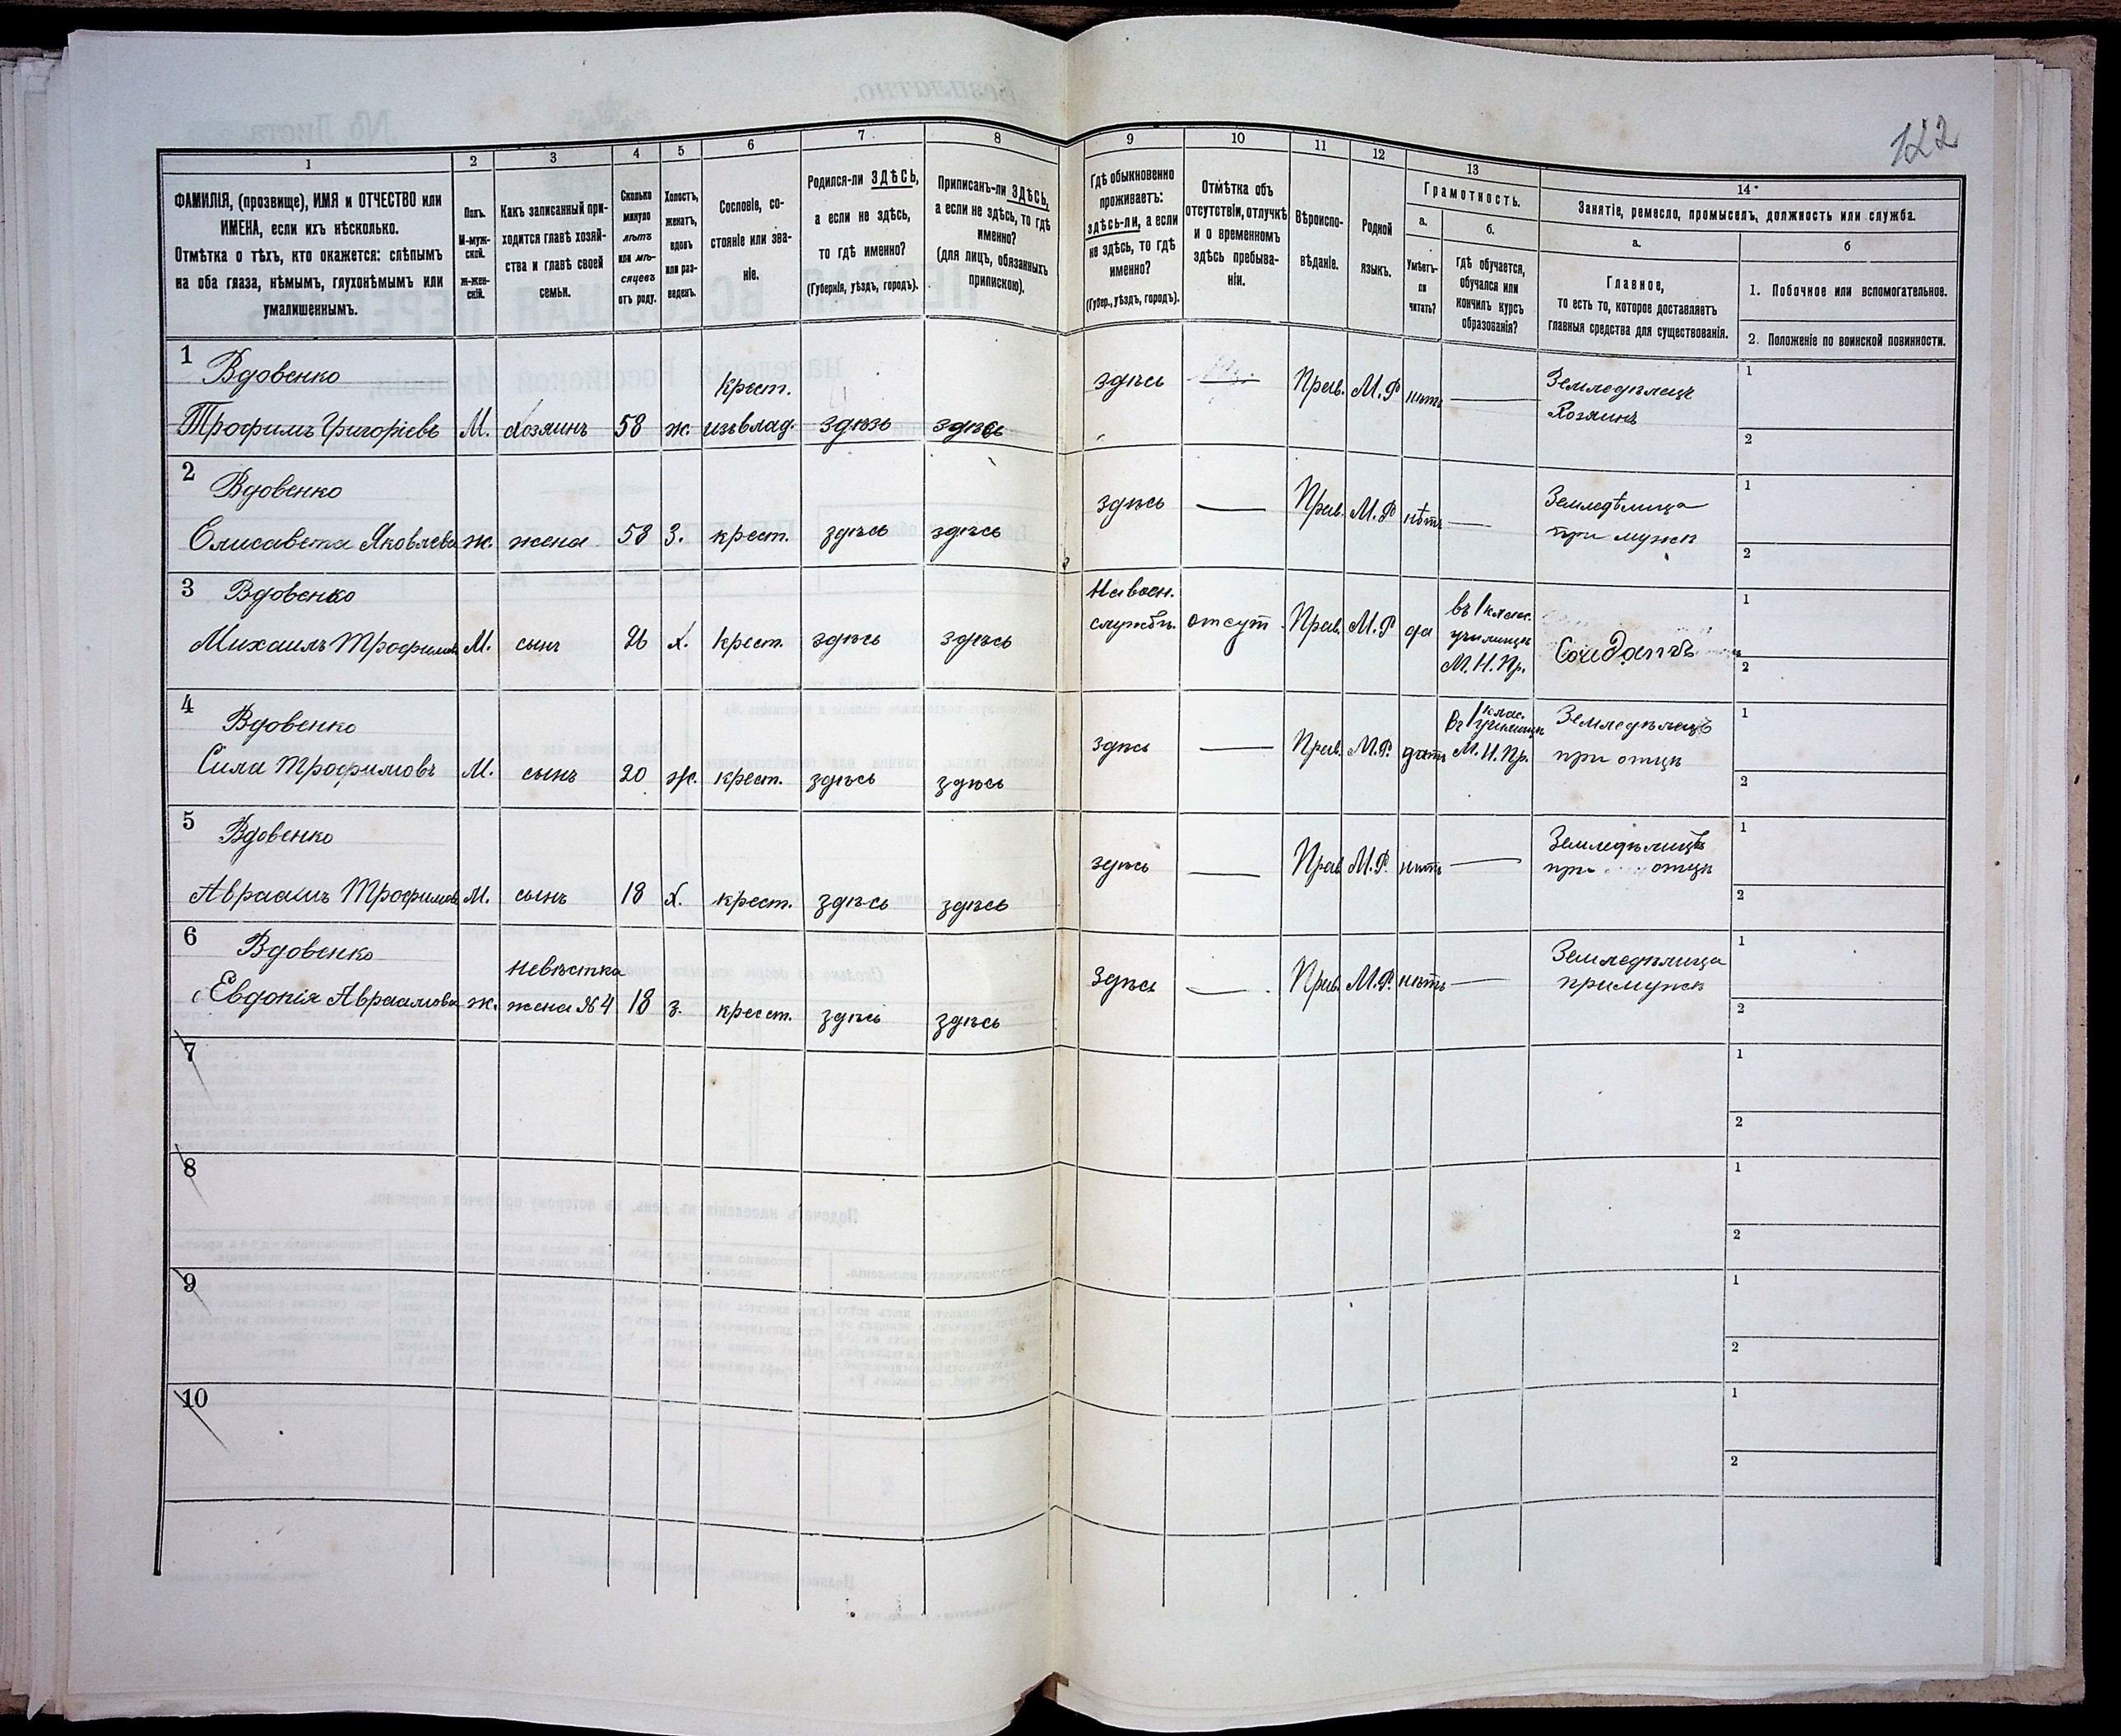 122
1
2
3
4
5
6
7
8
9
10
11
12
13
14
ФАМИЛІЯ, (прозвище), ИМЯ и ОТЧЕСТВО или
ИМЕНА, если ихъ нѣсколько.
Отмѣтка о тѣхъ, кто окажется: слѣпымъ
на оба глаза, нѣмымъ, глухонѣмымъ или
умалишеннымъ.
Полъ.
М-муж-
ской.
ж-жен-
скій.
Какъ записанный при-
ходится главѣ хозяй-
ства и главѣ своей
семьи.
Сколько
минуло
лѣтъ
или мѣ-
сяцевъ
отъ роду.
Холостъ,
женатъ,
вдовъ
или раз-
веденъ.
Сословіе, со-
стояніе или зва-
ніе.
Родился-ли ЗДѢСЬ,
а если не здѣсь,
то гдѣ именно?
(Губернія, уѣздъ, городъ).
Приписанъ-ли ЗДѢСЬ,
а если не здѣсь, то гдѣ
именно?
(для лицъ, обязанныхъ
припискою).
Гдѣ обыкновенно
проживаетъ:
здѣсь-ли, а если
не здѣсь, то гдѣ
именно?
(Губер., уѣздъ, городъ).
Отмѣтка объ
отсутствіи, отлучкѣ
и о временномъ
здѣсь пребыва-
ніи.
Вѣроиспо-
вѣданіе.
Родной
языкъ.
Грамотность.
а.
Умѣетъ-
ли
читать?
б.
Гдѣ обучается,
обучался или
кончилъ курсъ
образованія?
Занятіе, ремесло, промыселъ, должность или служба.
а.
Главное,
то есть то, которое доставляетъ
главныя средства для существованія.
б
1. Побочное или вспомогательное.
2. Положеніе по воинской повинности.
1 Вдовенко
Трофимъ Григоріевъ М. хозяинъ 58 ж. Крест.
изъ влад. здѣсь здѣсь здѣсь — Прав. М.Р нѣтъ — Земледѣлецъ
Хозяинъ
1
2
2 Вдовенко
Елисавета Яковлева ж. жена 58 З. крест. здѣсь здѣсь здѣсь — Прав. М.Р нѣтъ — Земледѣлица
при мужѣ
1
2
3 Вдовенко
Михаилъ Трофимов М. сынъ 26 х. крест. здѣсь здѣсь На воен.
службѣ. отсут. Прав. М.Р да въ 1 клас.
училищѣ
М.Н.Пр. Солдатъ
1
2
4 Вдовенко
Сила Трофимовъ М. сынъ 20 ж. крест. здѣсь здѣсь здѣсь — Прав. М.Р. Въ 1 клас.
училищѣ
М.Н.Пр. Земледѣлецъ
при отцѣ
1
2
5 Вдовенко
Авраамъ Трофимов М. сынъ 18 х. крест. здѣсь здѣсь здѣсь — Прав М.Р. нѣтъ — Земледѣлецъ
при отцѣ
1
2
6 Вдовенко
Евдокія Авраамова ж. невѣстка
жена №4 18 з. крест. здѣсь здѣсь здѣсь — Прав. М.Р. нѣтъ — Земледѣлица
при мужѣ
1
2
7
1
2
8
1
2
9
1
2
10
1
2